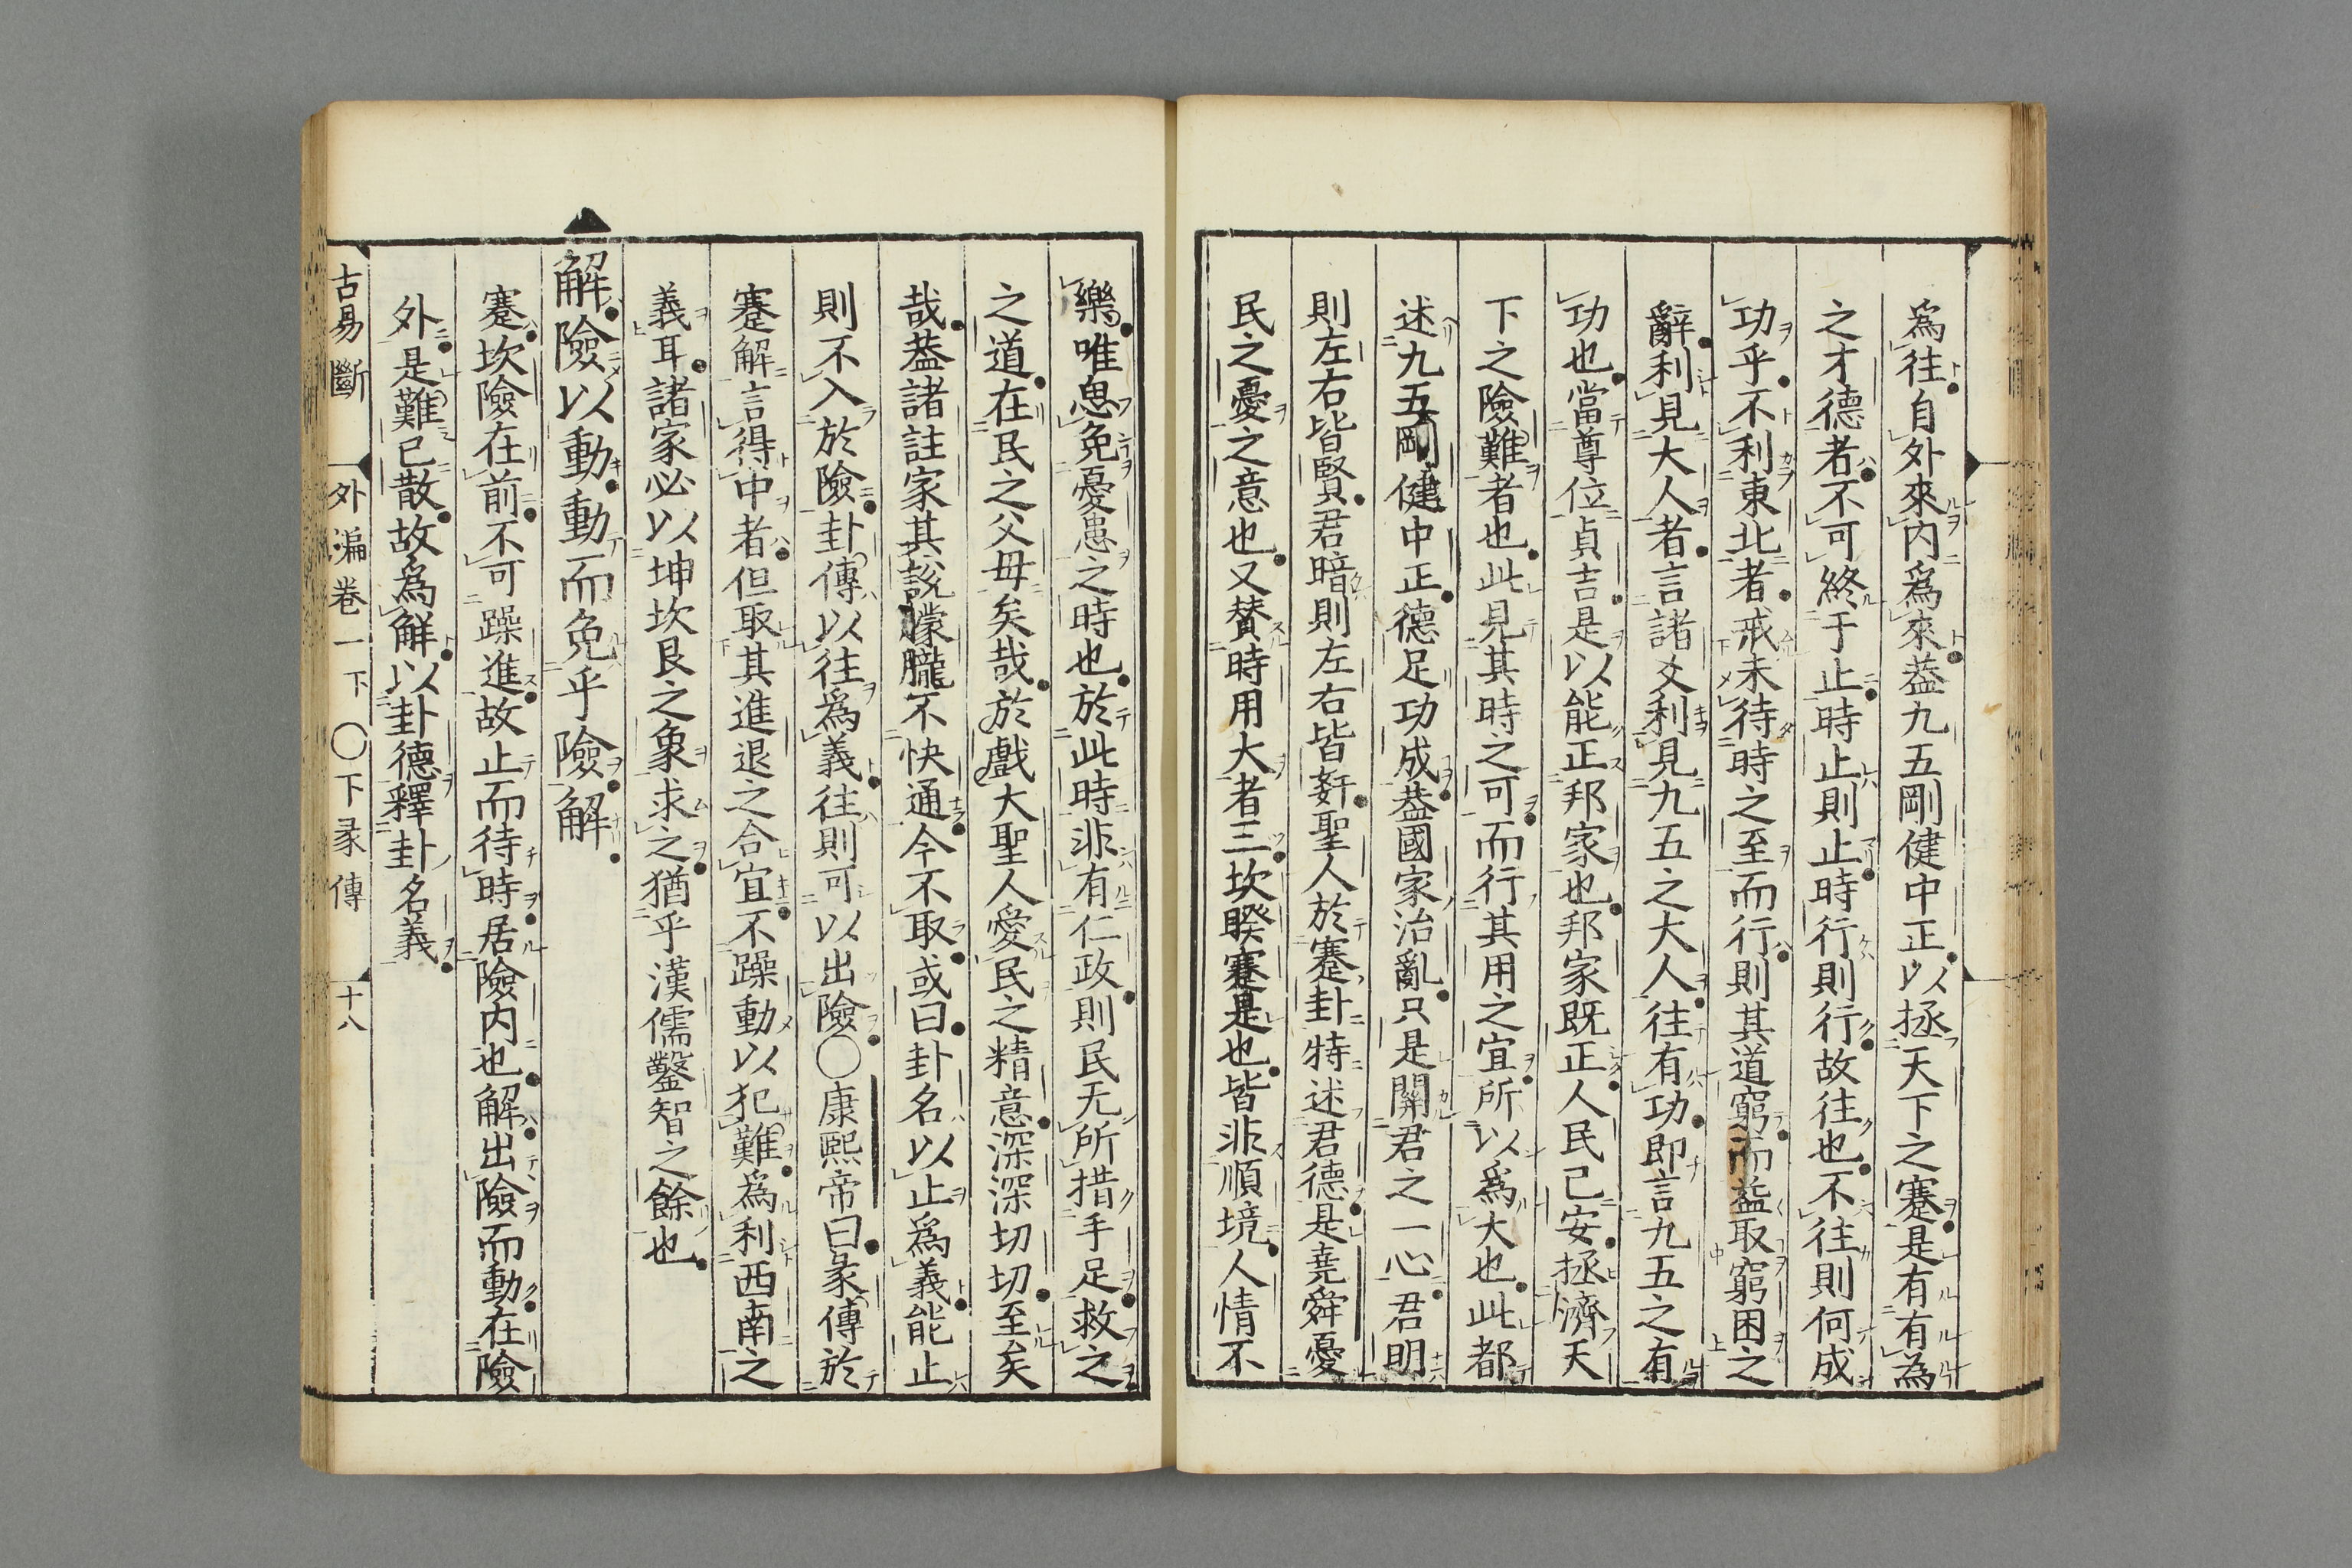 為往自外來内爲來蓋九五剛健中正以拯天下之蹇是有有為
之才德者不可終于止時止則止時行則行故往也不往則何成
功乎不利東北者戒未待時之至而行則其道窮而益取窮困之
辭利見大人者言諸爻利見九五之大人往有功即言九五之有
功也當尊位貞吉是以能正邦家也邦家既正人民已安拯濟天
下之險難者也此見其時之可而行其用之宜所以爲大也此都
述九五剛健中正德足功成蓋國家治亂只是關君之一心君明
則左右皆賢君暗則左右皆姧聖人於蹇卦特述君德是堯舜憂
民之憂之意也又賛時用大者三坎睽蹇是也皆非順境人情不
樂唯思免憂患之時也於此時非有仁政則民无所措手足救之
之道在民之父毋矣哉於戲大聖人愛民之精意深深切切至矣
哉蓋諸註家其說朦朧不快通今不取或曰卦名以止爲義能止
則不入於險卦傳以往爲義往則可以出險〇康熙帝曰彖傳於
蹇解言得中者但取其進退之合宜不躁動以犯難爲利西南之
義耳諸家必以坤坎艮之象求之猶乎漢儒鑿智之餘也
解險以動動而免乎險解
蹇坎險在前不可躁進故止而待時居險内也解出險而動在險
外是難已散故為解以卦德釋卦名義
古易斷 外編卷一下 〇下彖傳 十八